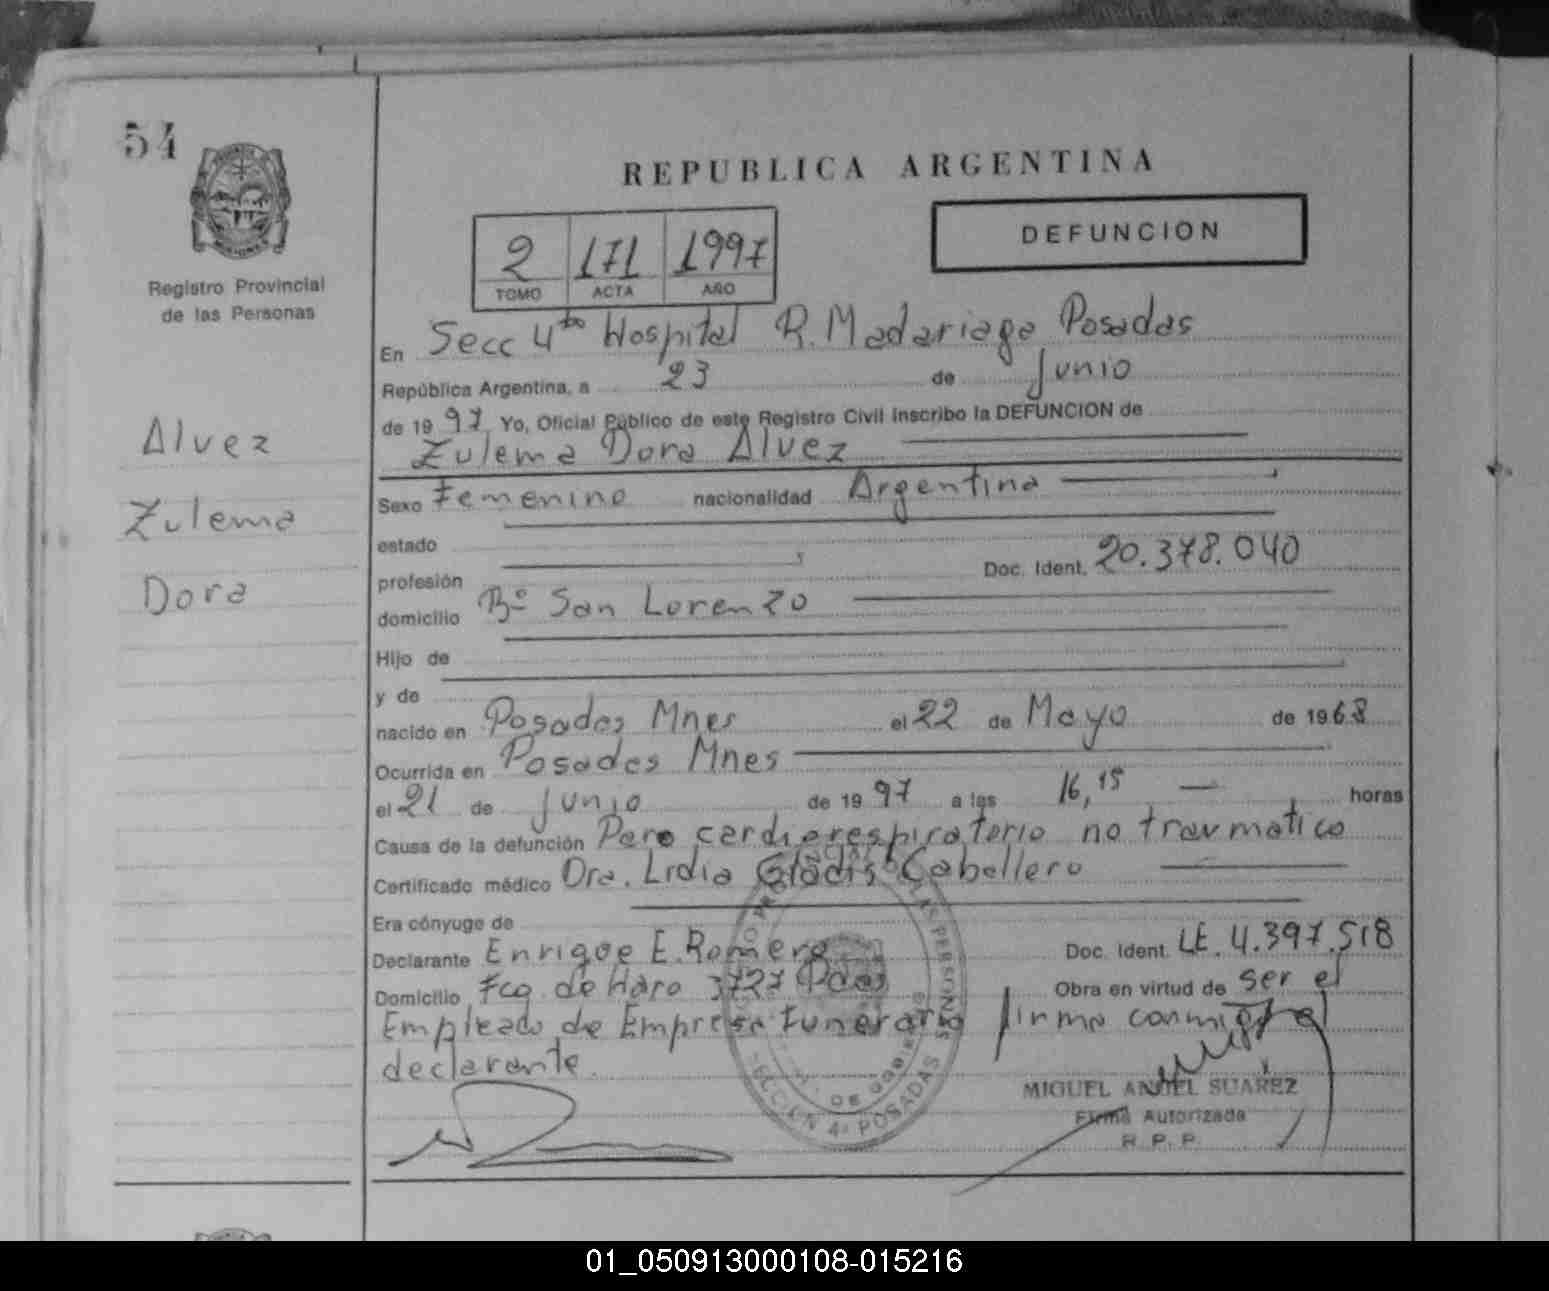 54
REPUBLICA ARGENTINA
DEFUNCION
2 171 1997
TOMO ACTA AÑO
Registro Provincial
de las Personas
Alvez
Zulema
Dora
En Secc 4ta Hospital R. Madariaga Posadas
República Argentina, a 23 de Junio
de 1997 Yo, Oficial Público de este Registro Civil inscribo la DEFUNCION de
Zulema Dora Alvez
Sexo Femenino nacionalidad Argentina
estado
profesión Doc. Ident. 20.378.040
domicilio Bº San Lorenzo
Hijo de
y de
nacido en Posadas Mnes el 22 de Mayo de 1968
Ocurrida en Posadas Mnes
el 21 de Junio de 1997 a las 16,15 horas
Causa de la defunción Paro cardiorespiratorio no traumatico
Certificado médico Dra. Lidia Gladis Caballero
Era cónyuge de
Declarante Enrique E. Romero Doc. Ident. LE. 4.397.518
Domicilio Fco. de Haro 3727 Pdas Obra en virtud de ser el
Empleado de Empresa Funeraria firma conmigo el
declarante.
SECCION 4ª POSADAS
MIGUEL ANGEL SUAREZ
Firma Autorizada
R. P. P.
01_050913000108-015216